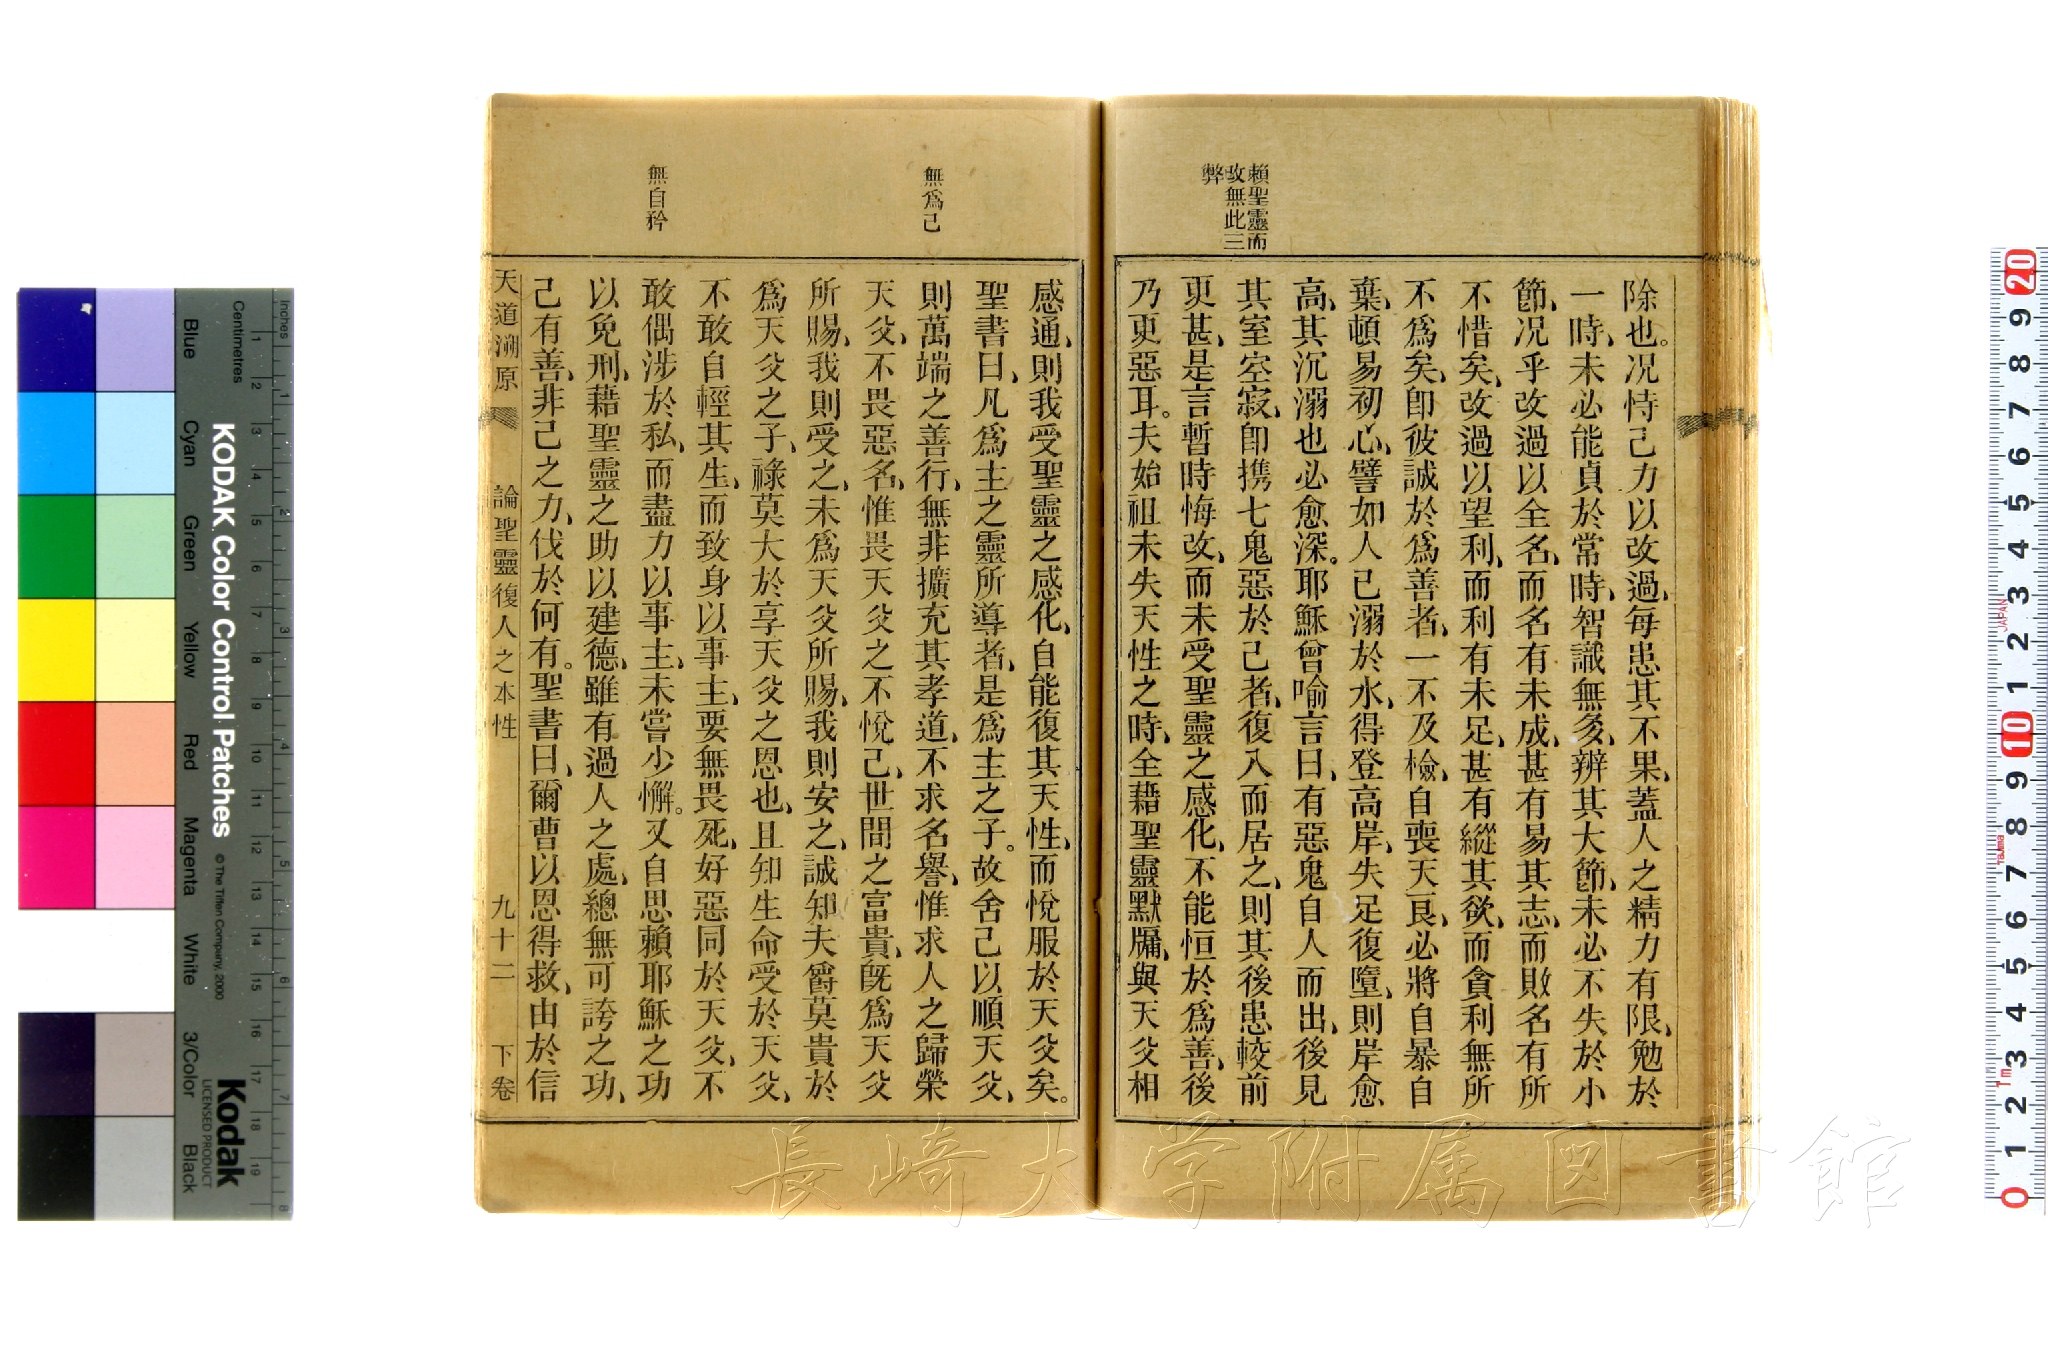 賴聖靈而
改無此三
弊
除也。况恃己力以改過、每患其不果、蓋人之精力有限、勉於
一時、未必能貞於常時、智識無多、辨其大節、未必不失於小
節、况乎改過以全名、而名有未成、甚有易其志、而敗名有所
不惜矣、改過以望利、而利有未足、甚有縱其欲、而貪利無所
不爲矣、卽彼誠於爲善者、一不及檢、自喪天良、必將自暴自
棄、頓易初心、譬如人已溺於水、得登高岸、失足復墮、則岸愈
高、其沉溺也必愈深。耶穌曾喻言曰、有惡鬼自人而出、後見
其室空寂、卽携七鬼惡於己者、復入而居之、則其後患較前
更甚、是言暫時悔改、而未受聖靈之感化、不能恒於爲善、後
乃更惡耳。夫始祖未失天性之時、全藉聖靈默牖、與天父相
無爲己
無自矜
感通、則我受聖靈之感化、自能復其天性、而悅服於天父矣。
聖書曰、凡爲主之靈所導者、是爲主之子。故舍己以順天父、
則萬端之善行、無非擴充其孝道、不求名譽、惟求人之歸榮
天父、不畏惡名、惟畏天父之不悅己、世間之富貴、旣爲天父
所賜、我則受之、未爲天父所賜、我則安之、誠知夫爵莫貴於
爲天父之子、祿莫大於享天父之恩也、且知生命受於天父、
不敢自輕其生、而致身以事主、要無畏死、好惡同於天父、不
敢偶涉於私、而盡力以事主、未嘗少懈。又自思賴耶穌之功
以免刑、藉聖靈之助以建德、雖有過人之處、總無可誇之功、
己有善、非己之力、伐於何有。聖書曰、爾曹以恩得救、由於信
天道溯原 論聖靈復人之本性 九十二 下卷
長崎大学附属図書館
Inches
Centimetres
KODAK Color Control Patches
© The Tiffen Company, 2000
Kodak
LICENSED PRODUCT
Blue Cyan Green Yellow Red Magenta White 3/Color Black
1 2 3 4 5 6 7 8
1 2 3 4 5 6 7 8 9 10 11 12 13 14 15 16 17 18 19
20 9 8 7 6 5 4 3 2 1 10 9 8 7 6 5 4 3 2 1 0
JAPAN
Tajima